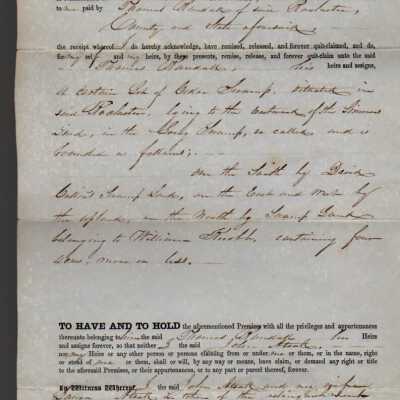 to me paid by Thomas Randall of said Rochester,
County and State aforesaid,
the receipt whereof I do hereby acknowledge, have remised, released, and forever quit-claimed, and do,
for my self and my heirs, by these presents, remise, release, and forever quit-claim unto the said
Thomas Randall, his heirs and assigns,
A certain Lot of Cedar Swamp, situated in
said Rochester, lying to the Eastward of the
Land, in the Swamp, so called and is
bounded as follows; —
on the South by David
Swamp Land, on the East and West by
the upland, on the North by Swamp Land
belonging to William containing four
acres, more or less. —
TO HAVE AND TO HOLD the aforementioned Premises with all the privileges and appurtenances
thereunto belonging to the said Thomas Randall his Heirs
and assigns forever, so that neither I the said John
nor my Heirs or any other person or persons claiming from or under me or them, or in the name, right
or stead of me or them, shall or will, by any way or means, have, claim, or demand any right or title
to the aforesaid Premises or their appurtenances, or to any part or parcel thereof, forever.
In Witness Whereof, I the said John and my wife
in of the relinquish